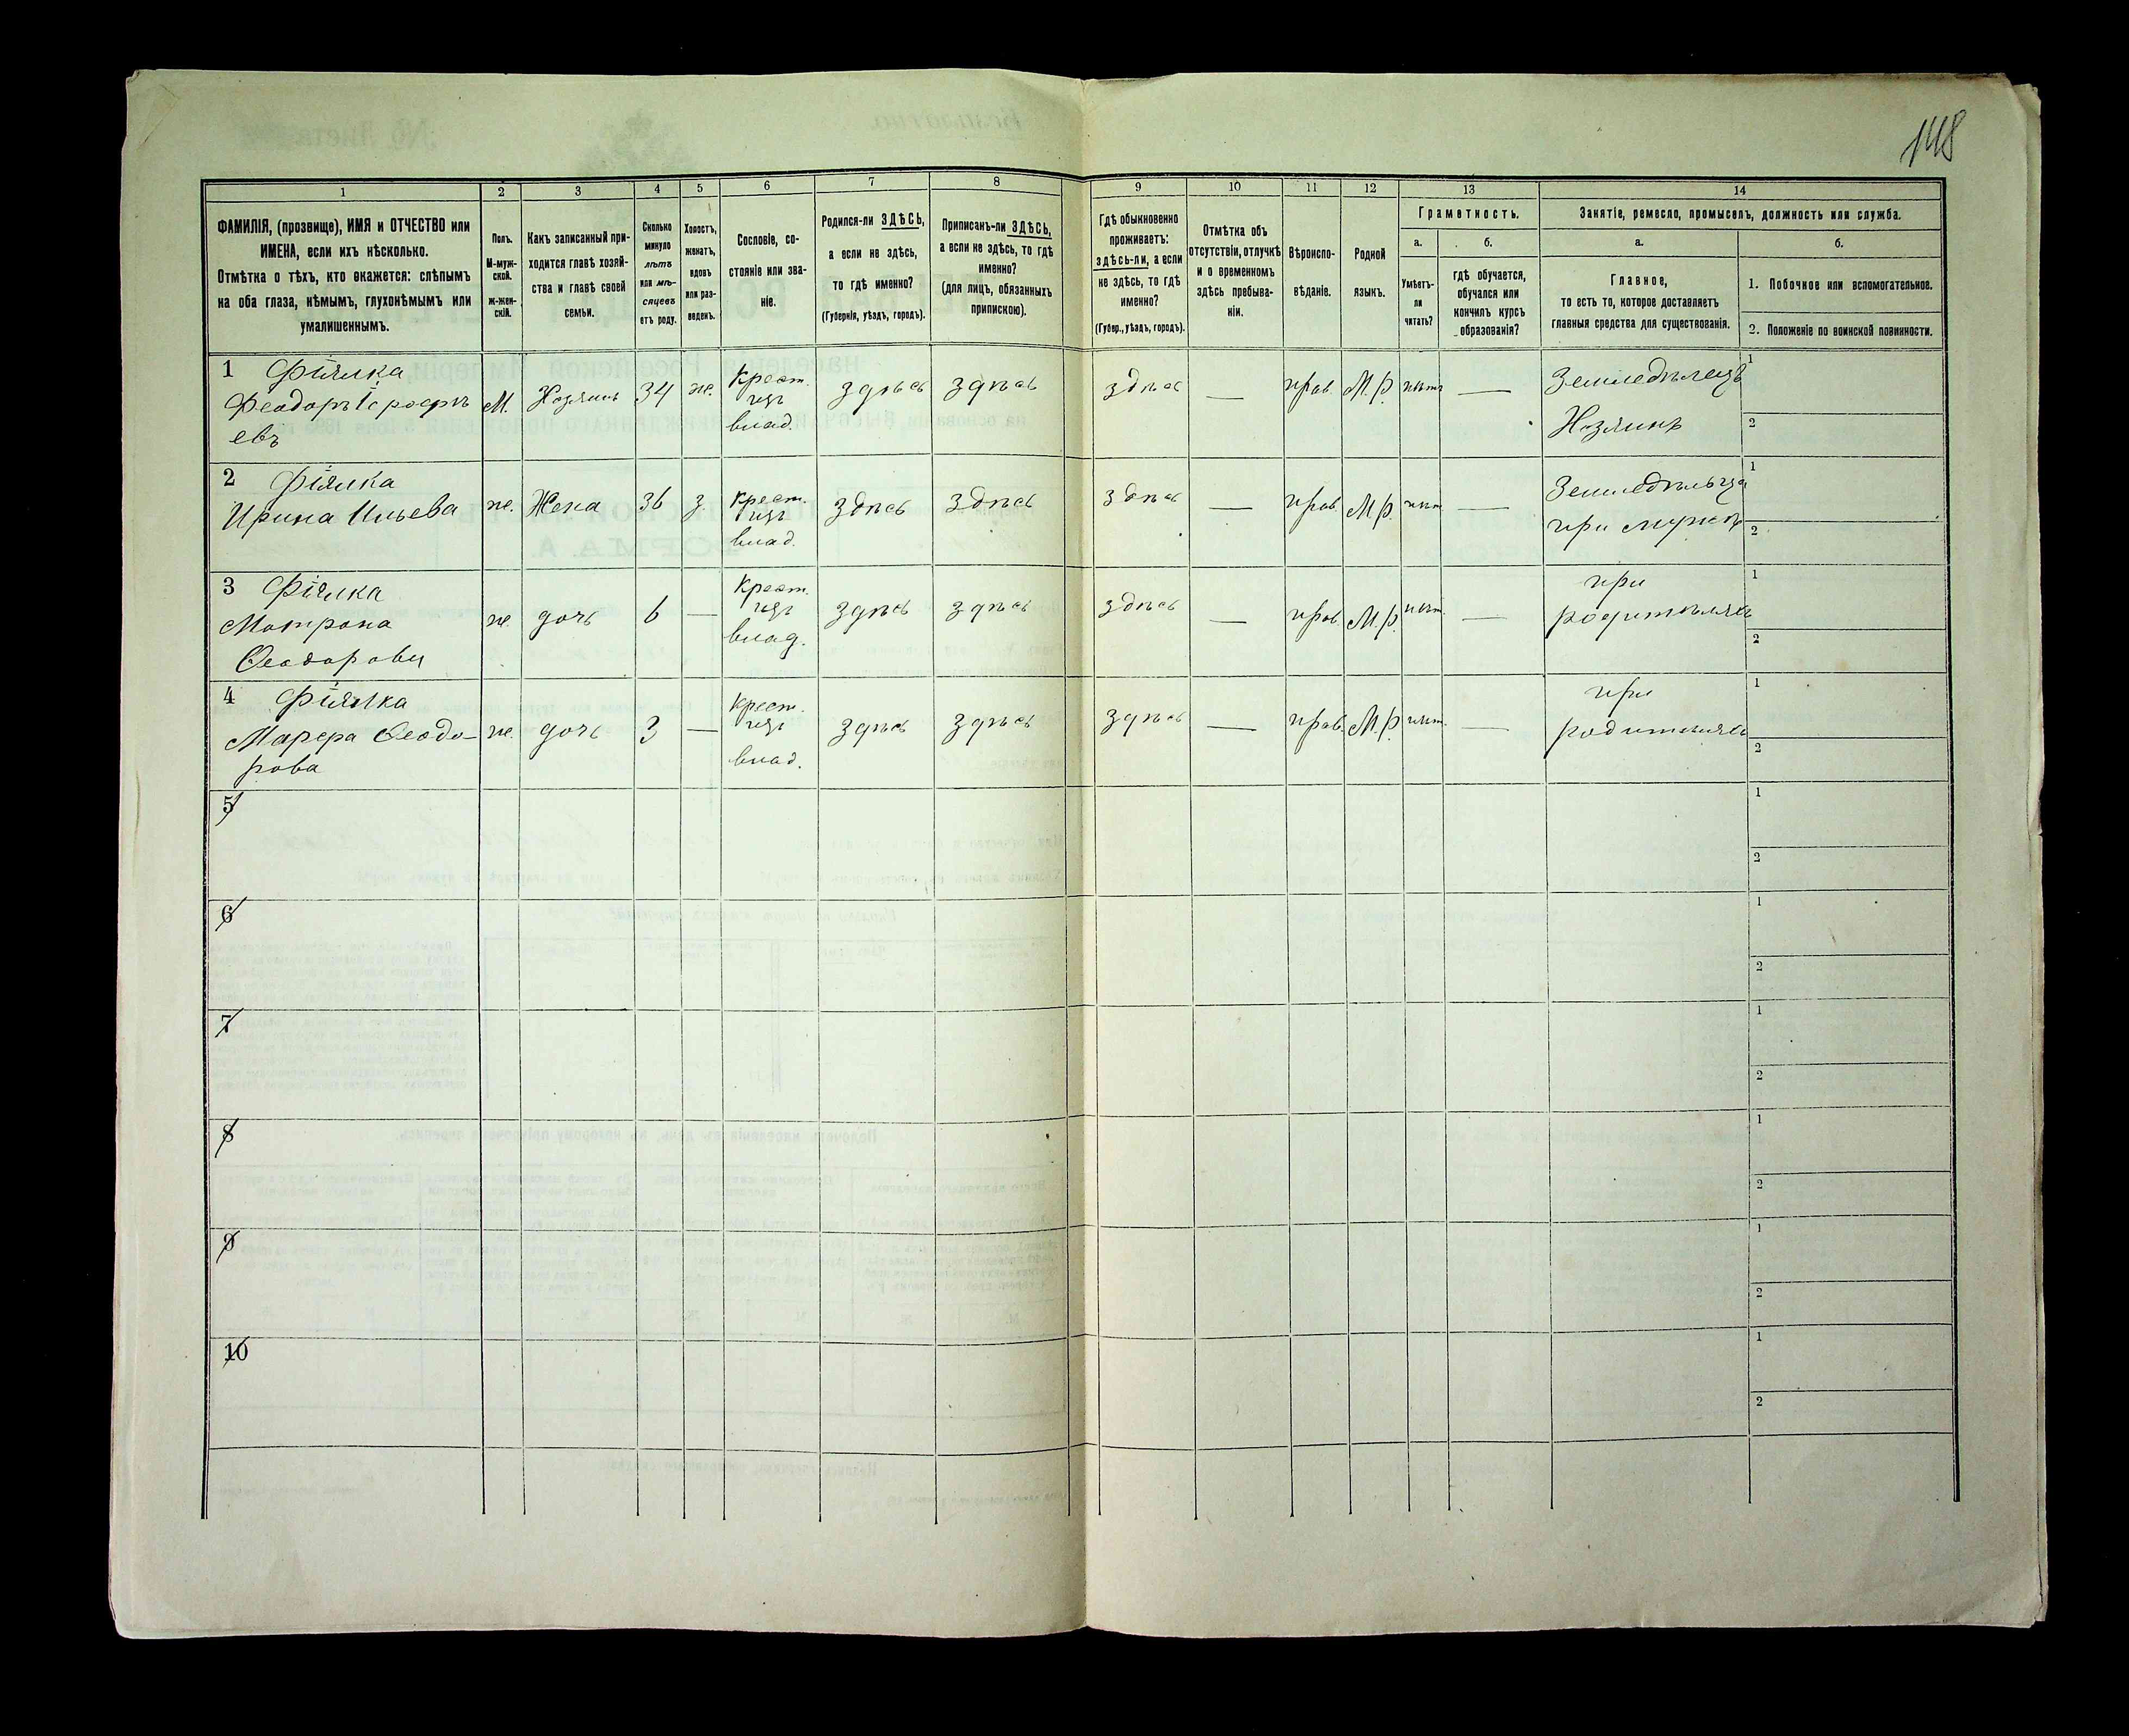 148
1 2 3 4 5 6 7 8 9 10 11 12 13 14
ФАМИЛІЯ, (прозвище), ИМЯ и ОТЧЕСТВО или
ИМЕНА, если ихъ нѣсколько.
Отмѣтка о тѣхъ, кто окажется: слѣпымъ
на оба глаза, нѣмымъ, глухонѣмымъ или
умалишеннымъ.
Полъ.
М-муж-
ской.
ж-жен-
скій.
Какъ записанный при-
ходится главѣ хозяй-
ства и главѣ своей
семьи.
Сколько
минуло
лѣтъ
или мѣ-
сяцевъ
отъ роду.
Холостъ,
женатъ,
вдовъ
или раз-
веденъ.
Сословіе, со-
стояніе или зва-
ніе.
Родился-ли ЗДѢСЬ,
а если не здѣсь,
то гдѣ именно?
(Губернія, уѣздъ, городъ).
Приписанъ-ли ЗДѢСЬ,
а если не здѣсь, то гдѣ
именно?
(для лицъ, обязанныхъ
припискою).
Гдѣ обыкновенно
проживаетъ:
здѣсь-ли, а если
не здѣсь, то гдѣ
именно?
(Губер., уѣздъ, городъ).
Отмѣтка объ
отсутствіи, отлучкѣ
и о временномъ
здѣсь пребыва-
ніи.
Вѣроиспо-
вѣданіе.
Родной
языкъ.
Грамотность.
а.
б.
Умѣетъ-
ли
читать?
гдѣ обучается,
обучался или
кончилъ курсъ
образованія?
Занятіе, ремесло, промыселъ, должность или служба.
а.
б.
Главное,
то есть то, которое доставляетъ
главныя средства для существованія.
1. Побочное или вспомогательное.
2. Положеніе по воинской повинности.
1 Фіялка
Феодоръ
евъ
М.
Хозяинъ
34
же.
Крест.
изъ
влад.
здѣсь
здѣсь
здѣсь
—
прав.
М.р.
нѣтъ
—
Земледѣлецъ
Хозяинъ
1
2
2 Фіялка
Ирина Ильева
же.
Жена
36
з.
Крест.
изъ
влад.
здѣсь
здѣсь
здѣсь
—
прав.
М.р.
нѣт
—
Земледѣльца
при мужѣ
1
2
3 Фіялка
Матрона
Феодорова
же.
дочь
6
—
Крест.
изъ
влад.
здѣсь
здѣсь
здѣсь
—
прав.
М.р.
нѣт.
—
при
родителяхъ
1
2
4 Фіялка
Марфа Феодо-
рова
же.
дочь
3
—
Крест.
изъ
влад.
здѣсь
здѣсь
здѣсь
—
прав.
М.р.
нѣт.
—
при
родителяхъ
1
2
5
1
2
6
1
2
7
1
2
8
1
2
9
1
2
10
1
2